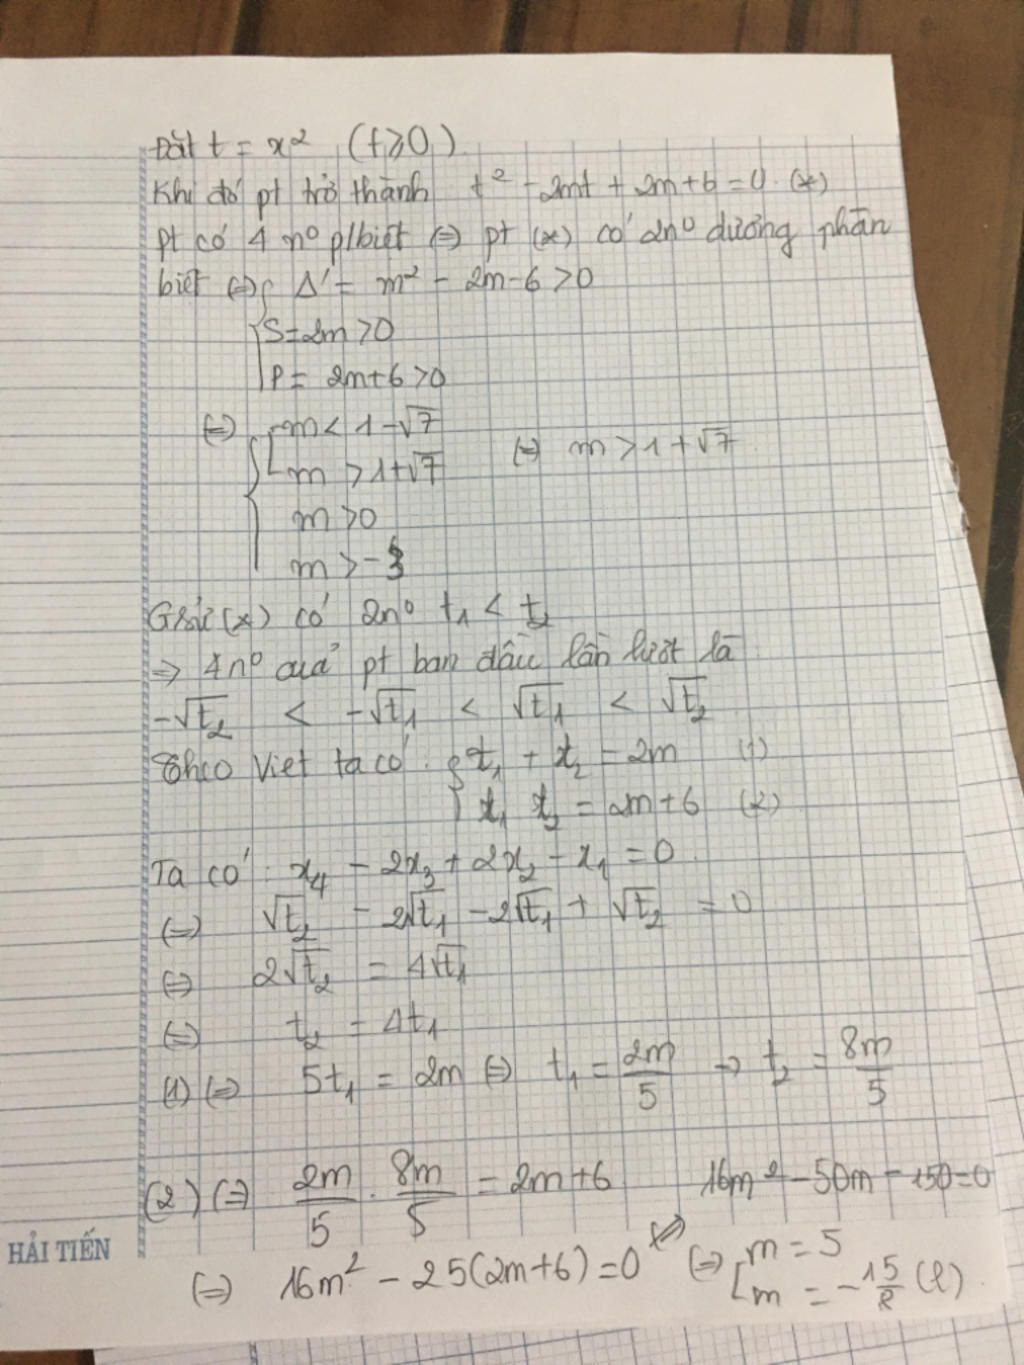 Đặt t = x² (t ≥ 0)
Khi đó pt trở thành t² - 2mt + 2m + 6 = 0 (*)
pt có 4 n⁰ p/biệt ⇔ pt (*) có 2n⁰ dương phân
biệt ⇔ { Δ' = m² - 2m - 6 > 0
S = 2m > 0
P = 2m + 6 > 0
⇔ { [ m < 1 - √7
m > 1 + √7 ⇔ m > 1 + √7
m > 0
m > -3
G/sử (*) có 2n⁰ t₁ < t₂
⇒ 4n⁰ của pt ban đầu lần lượt là
-√t₂ < -√t₁ < √t₁ < √t₂
Theo Viet ta có { t₁ + t₂ = 2m (1)
t₁ t₂ = 2m + 6 (2)
Ta có: x₄ - 2x₃ + 2x₂ - x₁ = 0
⇔ √t₂ - 2√t₁ - 2√t₁ + √t₂ = 0
⇔ 2√t₂ = 4√t₁
⇔ t₂ = 4t₁
(1) ⇔ 5t₁ = 2m ⇔ t₁ = 2m/5 → t₂ = 8m/5
(2) ⇔ 2m/5 . 8m/5 = 2m + 6 16m² - 50m - 150 = 0
⇔ 16m² - 25(2m + 6) = 0 ⇔ ⇔ [ m = 5
m = -15/8 (l)
HẢI TIẾN